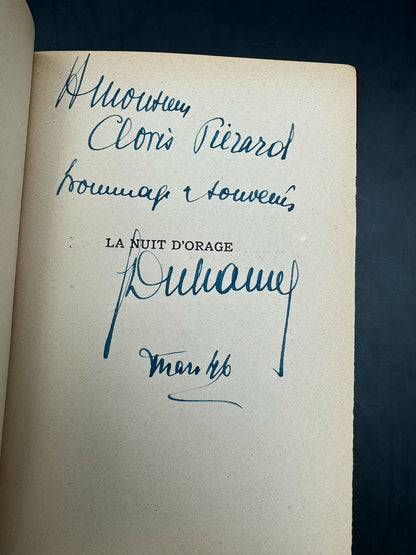 A Monsieur
Clovis Piérard
hommage & souvenirs
LA NUIT D'ORAGE
GDuhamel
Mars 46